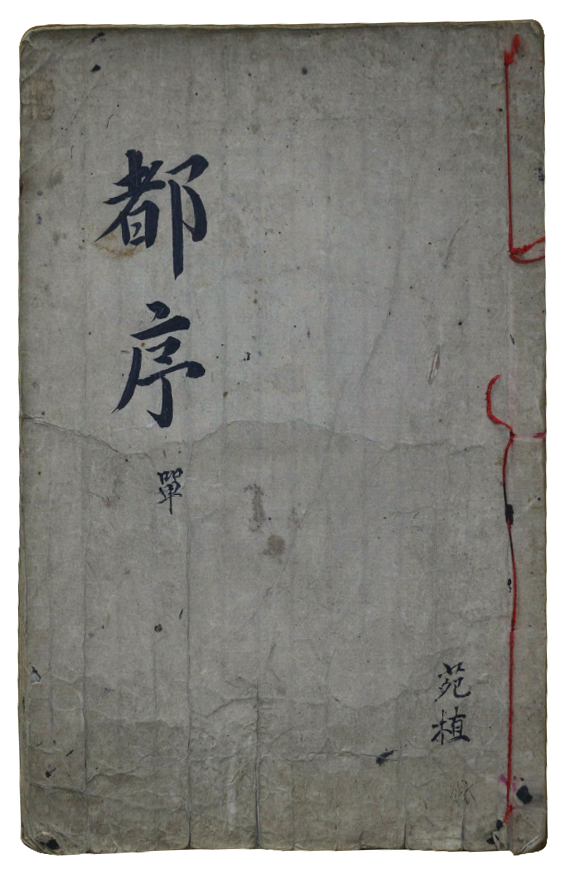 都序 單
苑植